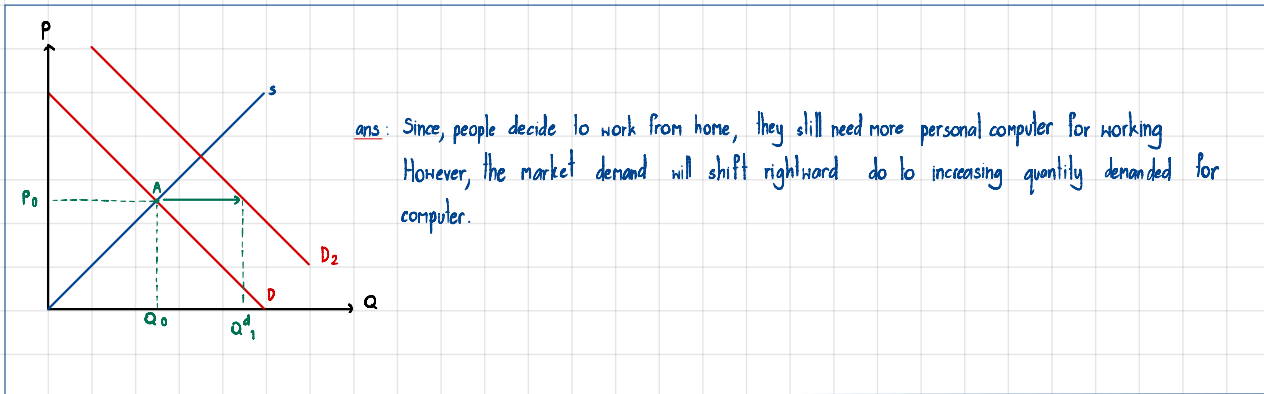 P
S
ans: Since, people decide to work from home, they still need more personal computer for working
However, the market demand will shift rightward do to increasing quantity demanded for
computer.
A
P0
D2
D
Q
Q0
Qd1